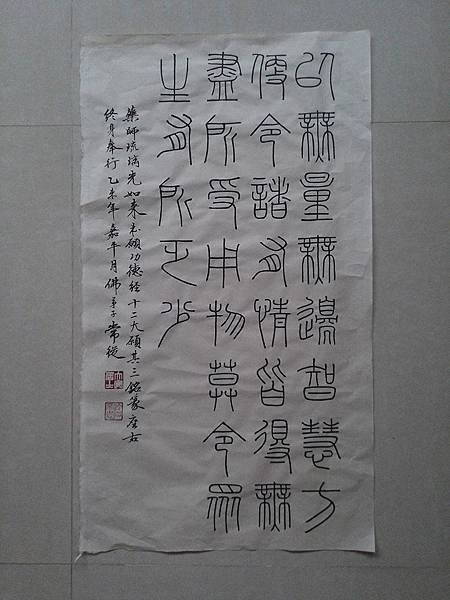 以無量無邊智慧方
便令諸有情皆得無
盡所受用物莫令眾
生有所乏少
藥師琉璃光如来本願功德經十二大願其三銘篆座右
終身奉行乙未年嘉平月佛弟子常從